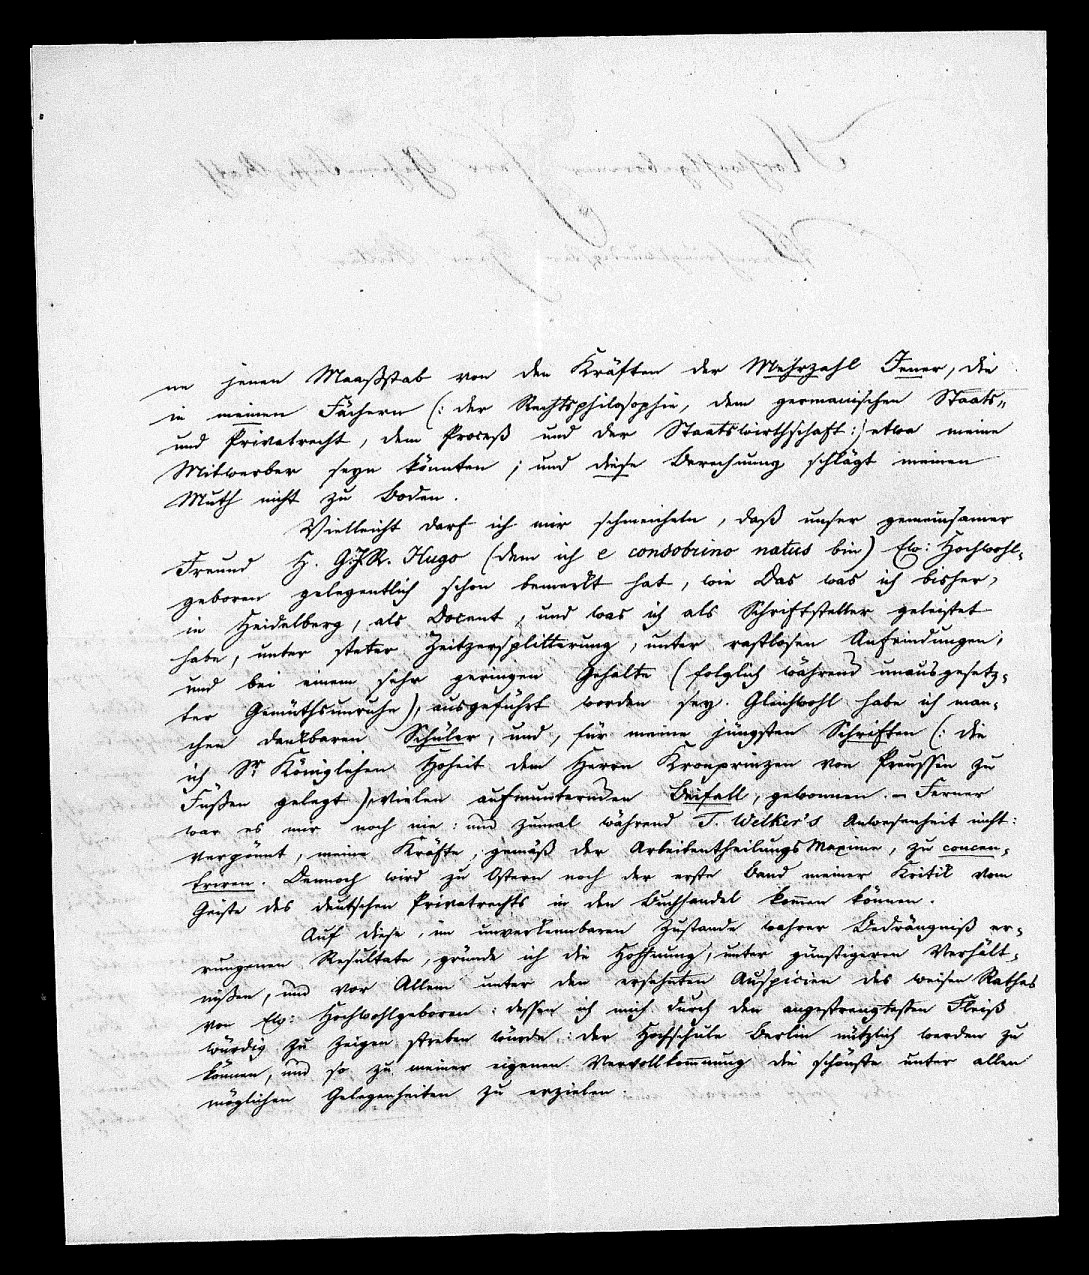 ne jenen Maaßstab von den Kräften der Mehrzahl Jener, die
in meinen Fächern (: der Rechtsphilosophie, dem germanischen Staats„
und Privatrecht, dem Proceß und der Staatswirthschaft :) etwa meine
Mitwerber seyn könnten; und diese Berechnung schlägt meinen
Muth nicht zu Boden.
Vielleicht darf ich mir schmeicheln, daß unser gemeinsamer
Freund H. G.J.R. Hugo (dem ich e consobrino natus bin) Ew: Hochwohl-
geboren gelegentlich schon bemerkt hat, wie Das was ich bisher,
in Heidelberg, als Docent, und was ich als Schriftsteller geleistet
habe, unter steter Zeitzersplitterung, unter rastlosen Anfeindungen,
und bei einem sehr geringen Gehalte (folglich während unausgesetz-
ter Gemüthsunruhe), ausgeführt worden sey. Gleichwohl habe ich man-
chen dankbaren Schüler, und, für meine jüngsten Schriften (: die
ich Sr Königlichen Hoheit dem Herrn Kronprinzen von Preussen zu
Füßen gelegt), vielen aufmunternden Beifall, gewonnen. – Ferner
war es mir noch nie: und zumal während T. Welker's Anwesenheit nicht:
vergönnt, meine Kräfte, gemäß der Arbeitentheilungs Maxime, zu concen-
triren. Dennoch wird zu Ostern noch der erste Band meiner Kritik vom
Geiste des deutschen Privatrechts in den Buchhandel kommen können.
Auf diese, im unverkennbaren Zustande wahrer Bedrängniß er-
rungenen Resultate, gründe ich die Hoffnung, unter günstigeren Verhält-
nißen, und vor Allem unter den ersehnten Auspicien des weisen Rathes
von Ew: Hochwohlgeboren: dessen ich mich durch den angestrengtesten Fleiß
würdig zu zeigen streben würde: der Hochschule Berlin nützlich werden zu
können, und so zu meiner eigenen Vervollkommnung die schönste unter allen
möglichen Gelegenheiten zu erzielen.